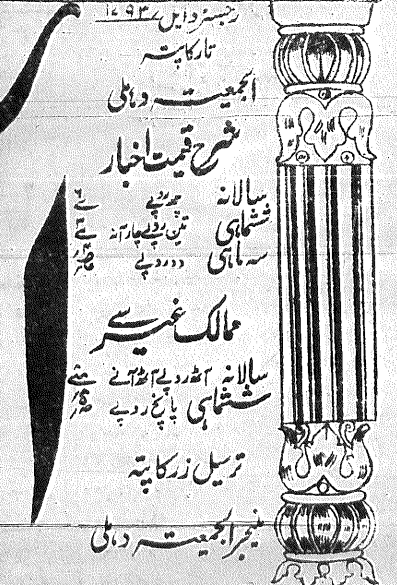 رجسٹرڈ ایل ۱۷۹۳
تار کا پتہ
الجمعیتہ دہلی
شرح قیمت اخبار
سالانہ چھ روپے
ششماہی تین روپے چار آنہ
سہ ماہی دو روپے
ممالک غیر سے
سالانہ آٹھ روپے آٹھ آنے
ششماہی پانچ روپے
ترسیل زر کا پتہ
منیجر الجمعیتہ دہلی